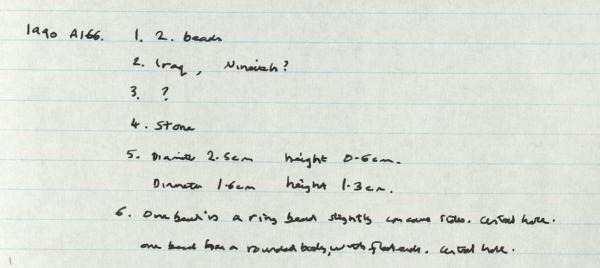 1990 A166. 1. 2. beads
2. Iraq, Nineveh?
3. ?
4. Stone
5. Diameter 2.5cm height 0.6cm.
Diameter 1.6cm height 1.3cm.
6. One bead is a ring bead slightly concave sides. Central hole.
one bead has a rounded body, with flat ends. Central hole.